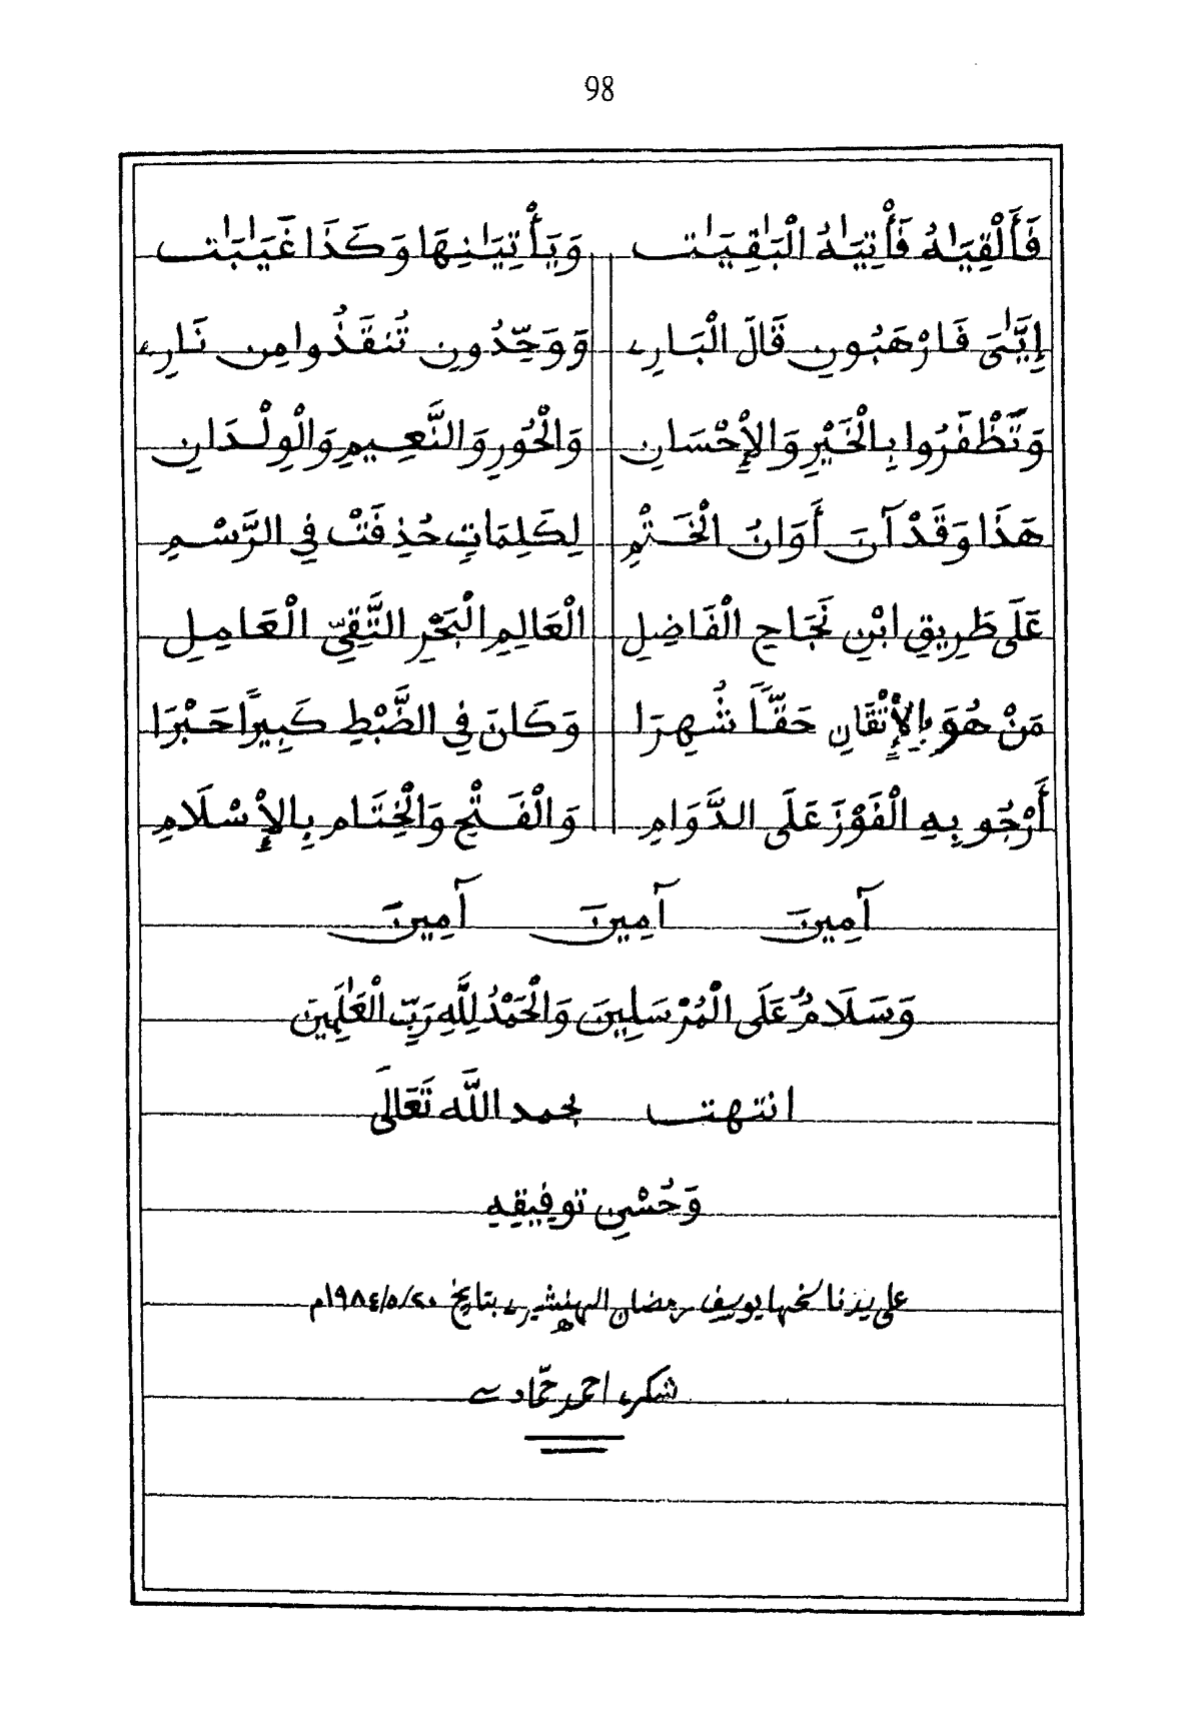 98
فَأَلْقِيَٰهُ فَأْتِيَٰهُ الْبَٰقِيَٰت وَيَأْتِيَٰنِهَا وَكَذَا غَيَٰبَٰت
إِيَّٰىَ فَارْهَبُونِ قَالَ الْبَارِے وَوَحِّدُونِ تُنقَذُوا مِن نَارِے
وَتَظْفَرُوا بِالْخَيْرِ وَالْإِحْسَانِ وَالْحُورِ وَالنَّعِيمِ وَالْوِلْدَانِ
هَذَا وَقَدْ آنَ أَوَانُ الْخَتْمِ لِكَلِمَاتٍ حُذِفَتْ فِي الرَّسْمِ
عَلَى طَرِيقِ ابْنِ نَجَاحِ الْفَاضِلِ الْعَالِمِ الْبَحْرِ التَّقِيِّ الْعَامِلِ
مَنْ هُوَ بِالْإِتْقَانِ حَقًّا شُهِرَا وَكَانَ فِي الضَّبْطِ كَبِيرًا حَبْرَا
أَرْجُو بِهِ الْفَوْزَ عَلَى الدَّوَامِ وَالْفَتْحِ وَالْخِتَامِ بِالْإِسْلَامِ
آمِينَ آمِينَ آمِينَ
وَسَلَامٌ عَلَى الْمُرْسَلِينَ وَالْحَمْدُ لِلَّهِ رَبِّ الْعَٰلَمِينَ
انتهت بحمد اللَّه تَعَالَى
وَحُسْنِ توفِيقِهِ
على يد ناسخها يوسف رمضان الهنشيرے بتايخ ٢٠/٥/١٩٨٤م
شكرے احمد حمّادے